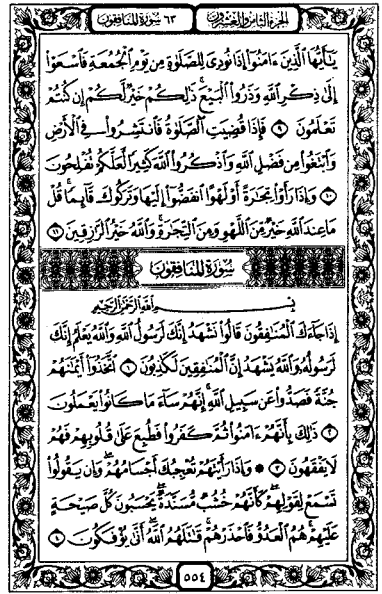 الجزء الثامن والعشرون ٦٣ سورة المنافقون
يَٰٓأَيُّهَا ٱلَّذِينَ ءَامَنُوٓا۟ إِذَا نُودِىَ لِلصَّلَوٰةِ مِن يَوْمِ ٱلْجُمُعَةِ فَٱسْعَوْا۟
إِلَىٰ ذِكْرِ ٱللَّهِ وَذَرُوا۟ ٱلْبَيْعَ ۚ ذَٰلِكُمْ خَيْرٌ لَّكُمْ إِن كُنتُمْ
تَعْلَمُونَ ٩ فَإِذَا قُضِيَتِ ٱلصَّلَوٰةُ فَٱنتَشِرُوا۟ فِى ٱلْأَرْضِ
وَٱبْتَغُوا۟ مِن فَضْلِ ٱللَّهِ وَٱذْكُرُوا۟ ٱللَّهَ كَثِيرًا لَّعَلَّكُمْ تُفْلِحُونَ
١٠ وَإِذَا رَأَوْا۟ تِجَٰرَةً أَوْ لَهْوًا ٱنفَضُّوٓا۟ إِلَيْهَا وَتَرَكُوكَ قَآئِمًا ۚ قُلْ
مَا عِندَ ٱللَّهِ خَيْرٌ مِّنَ ٱللَّهْوِ وَمِنَ ٱلتِّجَٰرَةِ ۚ وَٱللَّهُ خَيْرُ ٱلرَّٰزِقِينَ ١١
سورة المنافقون
بِسْمِ ٱللَّهِ ٱلرَّحْمَٰنِ ٱلرَّحِيمِ
إِذَا جَآءَكَ ٱلْمُنَٰفِقُونَ قَالُوا۟ نَشْهَدُ إِنَّكَ لَرَسُولُ ٱللَّهِ ۗ وَٱللَّهُ يَعْلَمُ إِنَّكَ
لَرَسُولُهُۥ وَٱللَّهُ يَشْهَدُ إِنَّ ٱلْمُنَٰفِقِينَ لَكَٰذِبُونَ ١ ٱتَّخَذُوٓا۟ أَيْمَٰنَهُمْ
جُنَّةً فَصَدُّوا۟ عَن سَبِيلِ ٱللَّهِ ۚ إِنَّهُمْ سَآءَ مَا كَانُوا۟ يَعْمَلُونَ
٢ ذَٰلِكَ بِأَنَّهُمْ ءَامَنُوا۟ ثُمَّ كَفَرُوا۟ فَطُبِعَ عَلَىٰ قُلُوبِهِمْ فَهُمْ
لَا يَفْقَهُونَ ٣ ۞ وَإِذَا رَأَيْتَهُمْ تُعْجِبُكَ أَجْسَامُهُمْ ۖ وَإِن يَقُولُوا۟
تَسْمَعْ لِقَوْلِهِمْ ۖ كَأَنَّهُمْ خُشُبٌ مُّسَنَّدَةٌ ۖ يَحْسَبُونَ كُلَّ صَيْحَةٍ
عَلَيْهِمْ ۚ هُمُ ٱلْعَدُوُّ فَٱحْذَرْهُمْ ۚ قَٰتَلَهُمُ ٱللَّهُ ۖ أَنَّىٰ يُؤْفَكُونَ ٤
٥٥٤